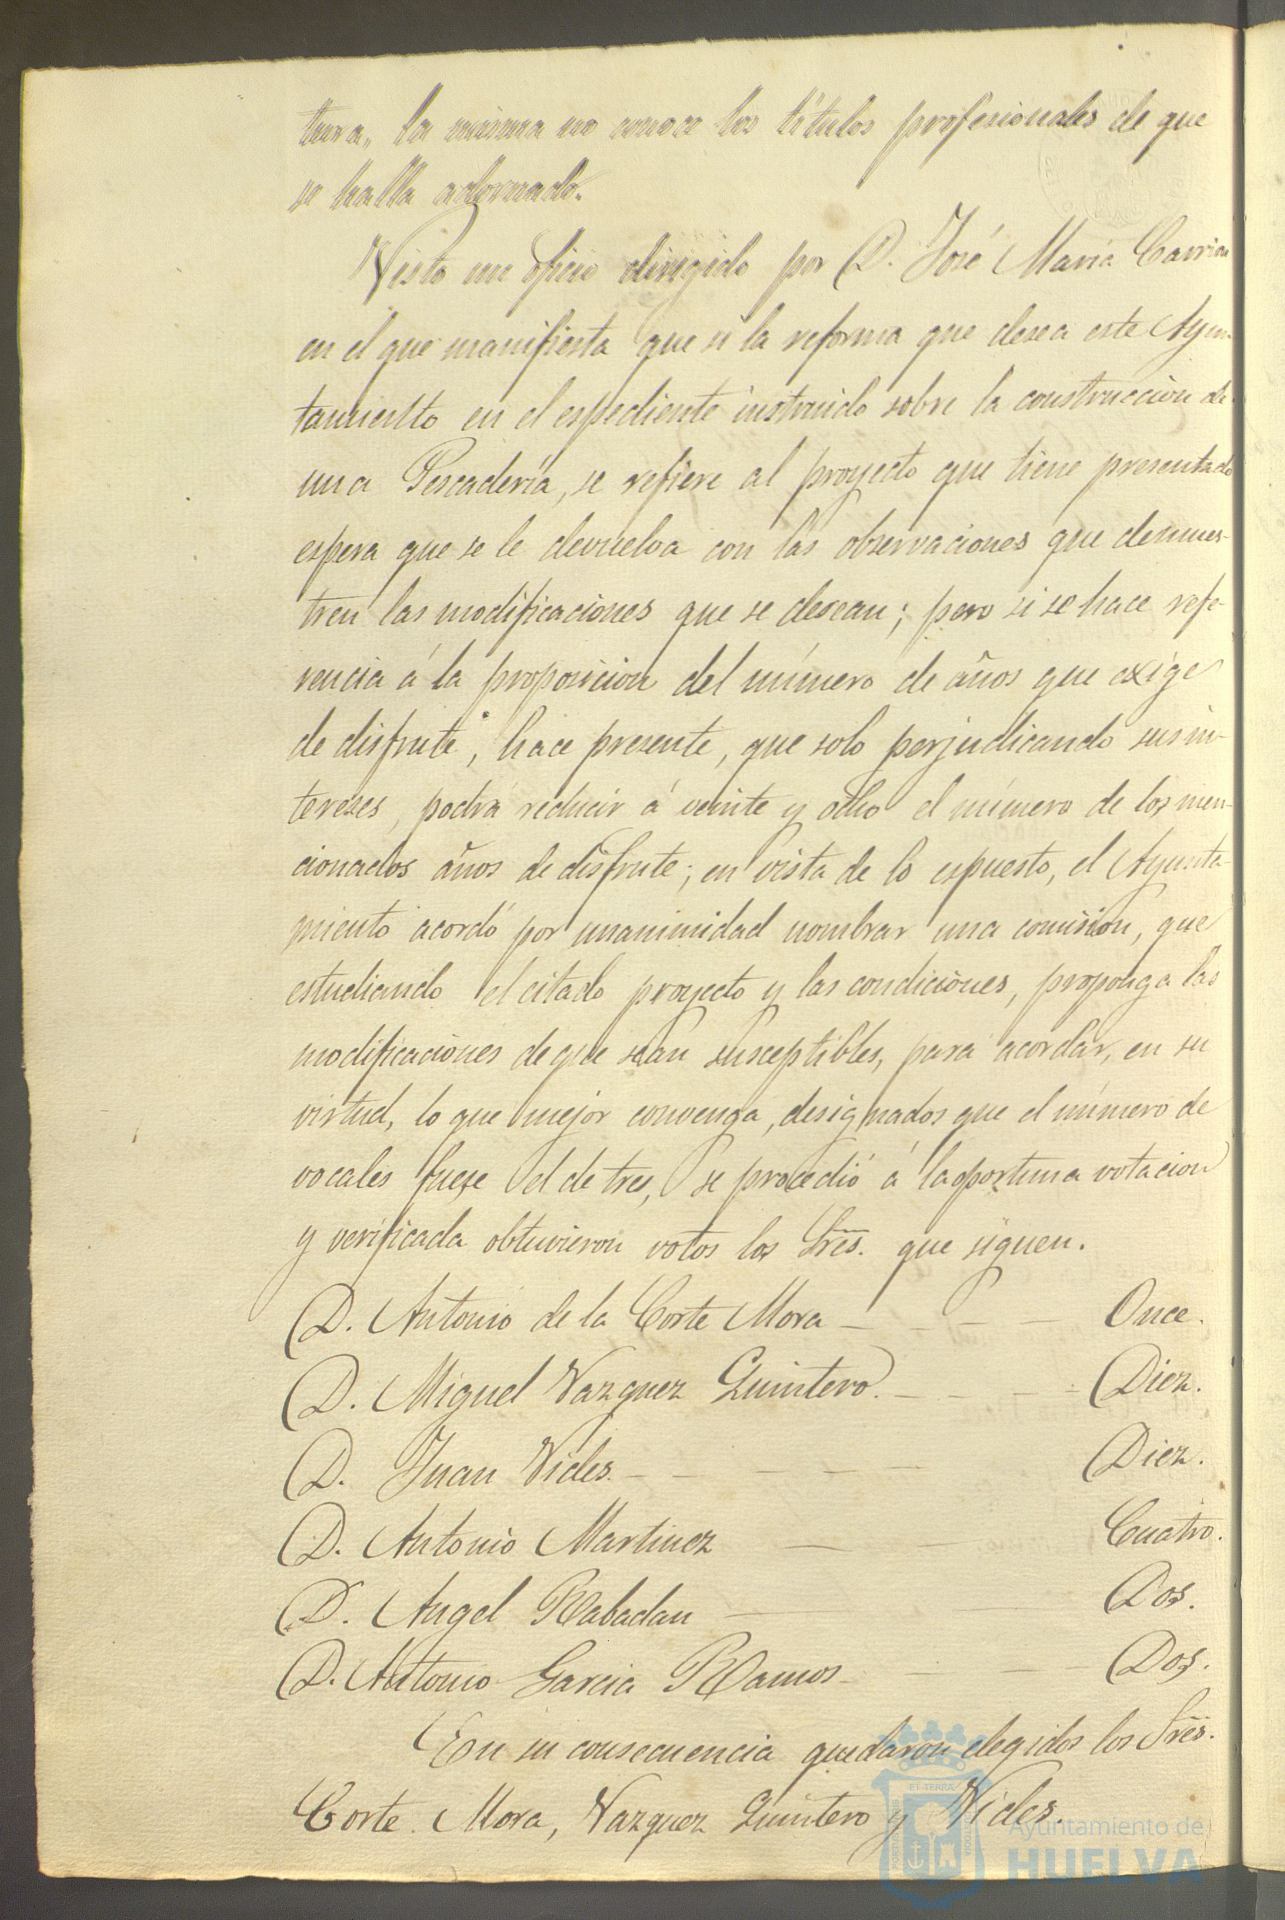 tura, la misma no conoce los títulos profesionales de que
se halla adornado.
Visto un oficio dirigido por D. José María Carrion
en el que manifiesta que si la reforma que desea este Ayun-
tamiento en el espediente instruido sobre la construccion de
una Pescadería, se refiere al proyecto que tiene presentado
espera que se le devuelva con las observaciones que demues-
tren las modificaciones que se desean; pero si se hace refe-
rencia á la proposicion del número de años que exige
de disfrute, hace presente, que solo perjudicando sus in-
tereses, podrá reducir á veinte y ocho el número de los men-
cionados años de disfrute; en vista de lo espuesto, el Ayunta-
miento acordó por unanimidad nombrar una comision, que
estudiando el citado proyecto y las condiciones, proponga las
modificaciones de que sean susceptibles, para acordar, en su
virtud, lo que mejor convenga, designados que el número de
vocales fuese el de tres, se procedió á la oportuna votacion
y verificada obtuvieron votos los Sres. que siguen.
D. Antonio de la Corte Mora - - - - Once.
D. Miguel Vazquez Quintero. - - - - Diez.
D. Juan Vides. - - - - - Diez.
D. Antonio Martinez - - Cuatro.
D. Angel Rabadan - - Dos.
D. Antonio Garcia Ramos - - Dos.
En su consecuencia quedaron elegidos los Sres.
Corte Mora, Vazquez Quintero y Vides.
ET TERRA
Ayuntamiento de
HUELVA